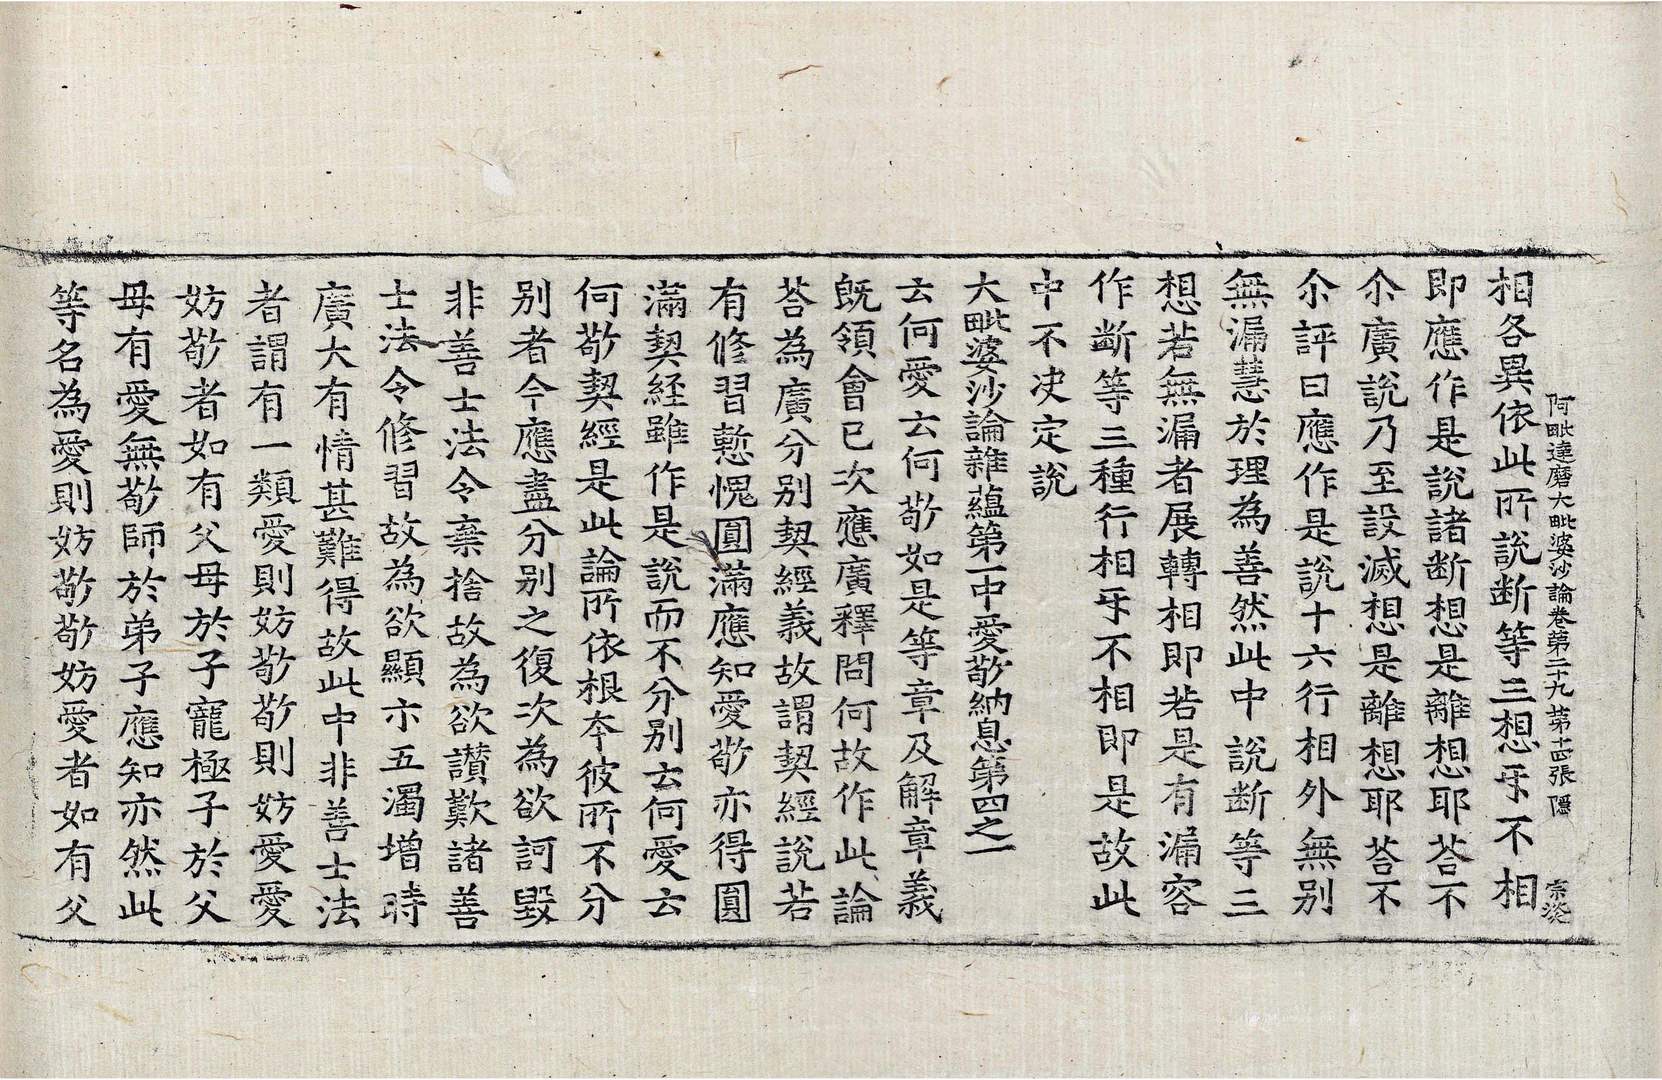 阿毗達磨大毗婆沙論卷第二十九 第十四張 隱 宗淡
相各異依此所說断等三想㸦不相
即應作是說諸断想是離想耶荅不
尒廣說乃至設滅想是離想耶荅不
尒評曰應作是說十六行相外無別
無漏慧於理為善然此中說断等三
想若無漏者展轉相即若是有漏容
作斷等三種行相㸦不相即是故此
中不决定說
大毗婆沙論雜蘊第一中愛敬納息第四之一
云何愛云何敬如是等章及解章義
既領會已次應廣釋問何故作此論
荅為廣分別契經義故謂契經說若
有修習慙愧圓滿應知愛敬亦得圓
滿契経雖作是說而不分別云何愛云
何敬契經是此論所依根夲彼所不分
別者今應盡分別之復次為欲訶毀
非善士法令棄捨故為欲讃歎諸善
士法令修習故為欲顯示五濁增時
廣大有情甚難得故此中非善士法
者謂有一類愛則妨敬敬則妨愛愛
妨敬者如有父母於子寵極子於父
母有愛無敬師於弟子應知亦然此
等名為愛則妨敬敬妨愛者如有父